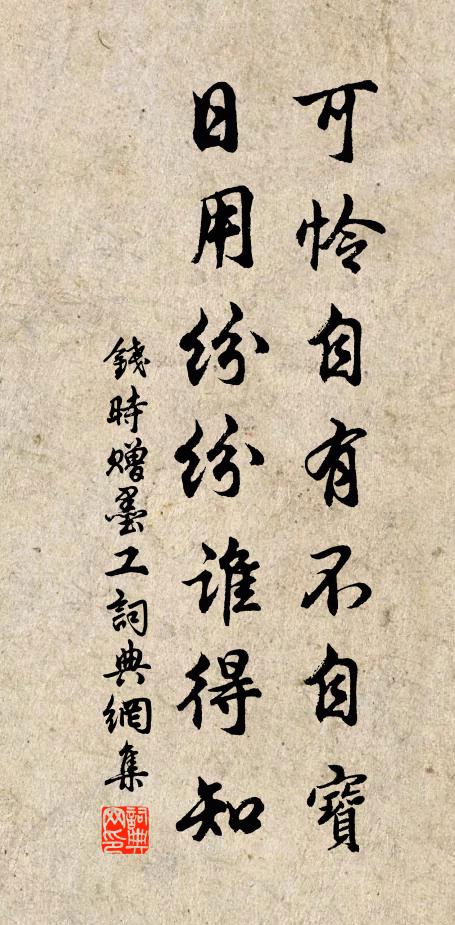 可怜自有不自寶
日用纷纷誰得知
錢時贈墨工詞典網集
詞典网印